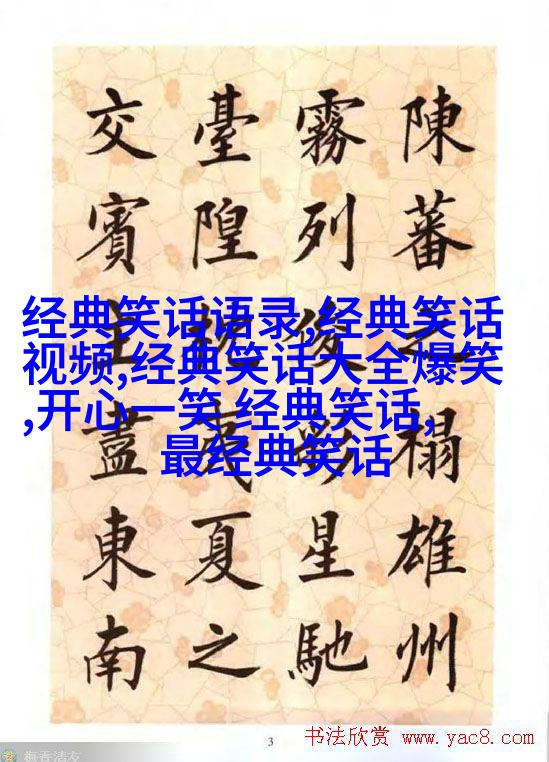 陳蕃之榻雄州
霧列俊彩星馳
臺隍枕夷夏之
交賓主盡東南
经典笑话语录,经典笑话
视频,经典笑话大全爆笑
,开心一笑 经典笑话,
最经典笑话
3
书法欣赏 www.yac8.com
梅香清友